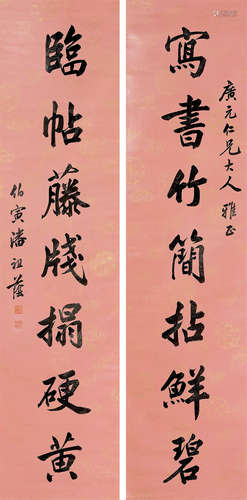 廣元仁兄大人雅正
寫書竹簡拈鮮碧
臨帖藤牋搨硬黃
伯寅潘祖蔭